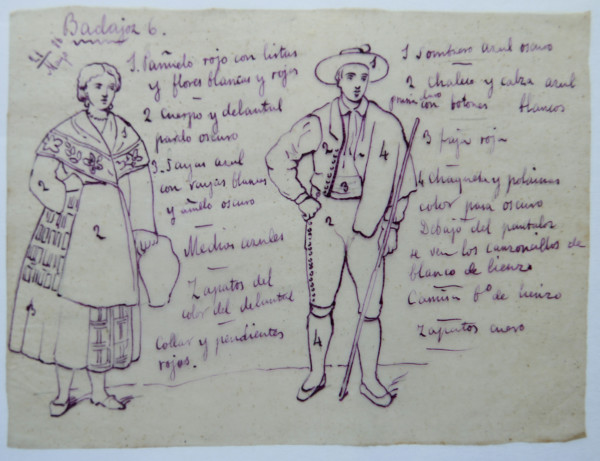 Badajoz 6.
1. Pañuelo rojo con listas
y flores blancas y rojas
2 Cuerpo y delantal
pardo oscuro
3. Sayas azul
con rayas blancas
y oscuro
Medias azules
Zapatos del
color del delantal
Collar y pendientes
rojos.
1 Sombrero azul oscuro
2 Chaleco y calza azul
con botones blancos
3 faja roja
4 Chaqueta y polainas
color oscuro
Debajo del pantalon
se ven los calzoncillos de
blanco de lienzo
Camisa de lienzo
Zapatos cuero
1
2
2
3
3
1
2
3
4
2
4